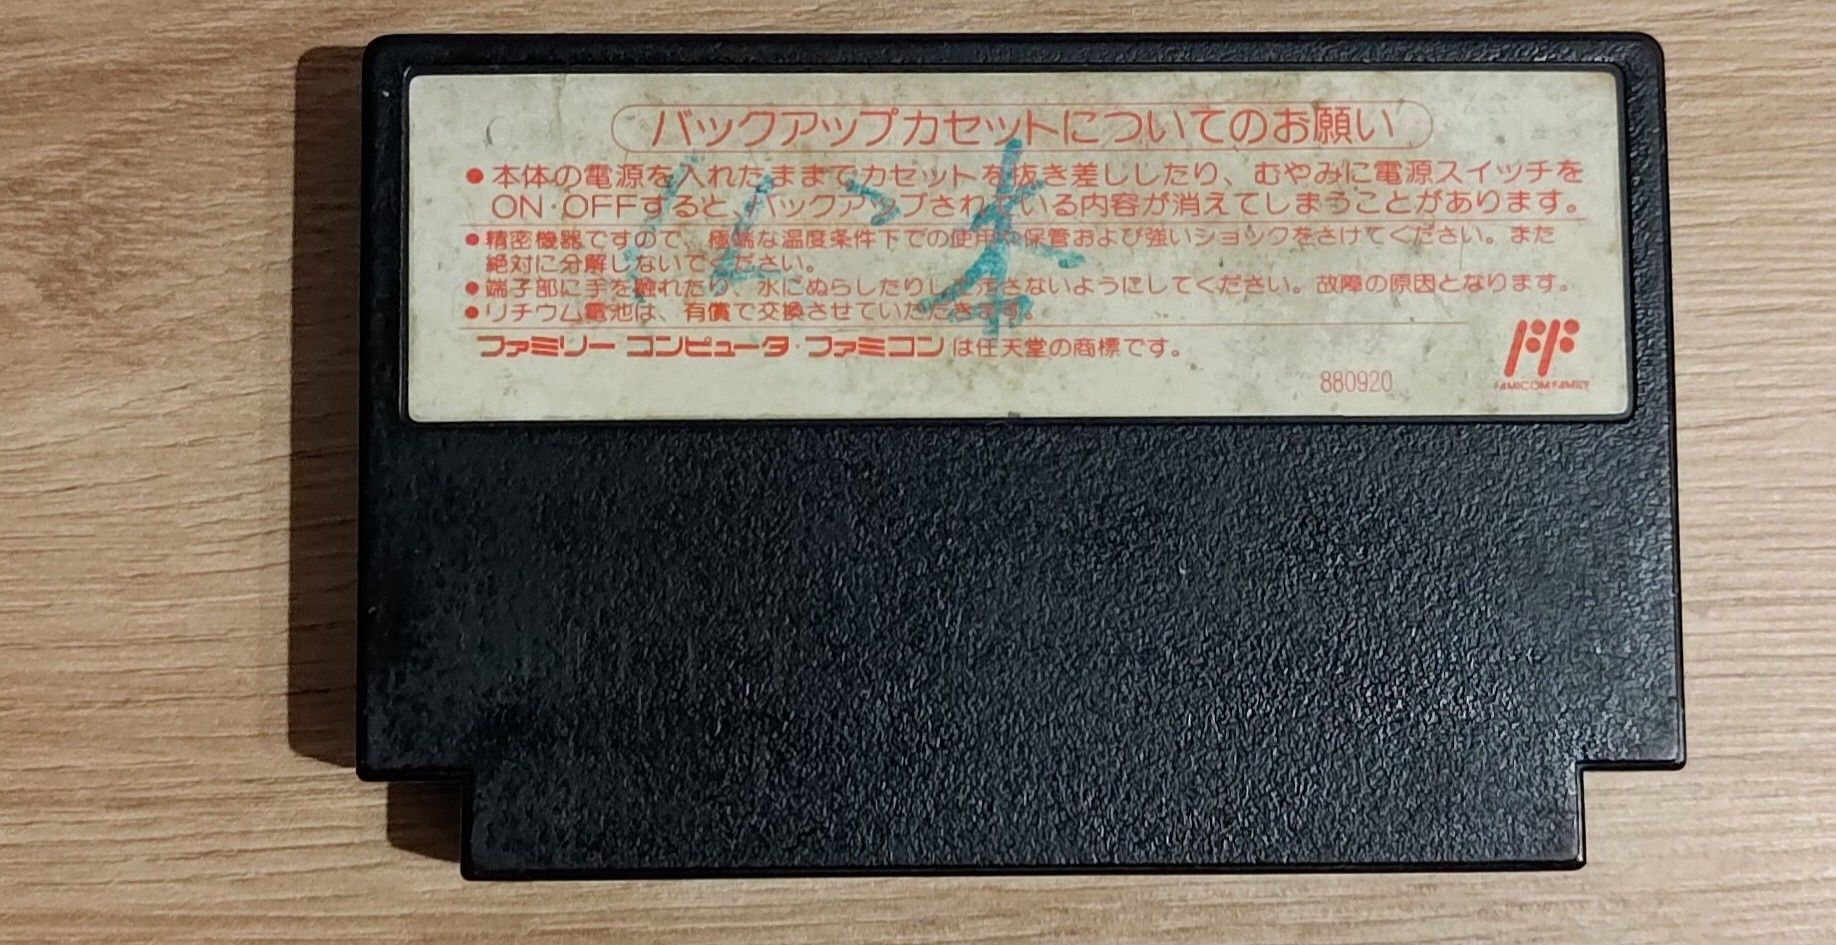 バックアップカセットについてのお願い
●本体の電源を入れたままでカセットを抜き差ししたり、むやみに電源スイッチを
ON・OFFすると、バックアップされている内容が消えてしまうことがあります。
●精密機器ですので、極端な温度条件下での使用や保管および強いショックをさけてください。また
絶対に分解しないでください。
●端子部に手を触れたり、水にぬらしたりしてよごさないようにしてください。故障の原因となります。
●リチウム電池は、有償で交換させていただきます。
ファミリーコンピュータ・ファミコンは任天堂の商標です。
880920
FAMICOM FAMILY